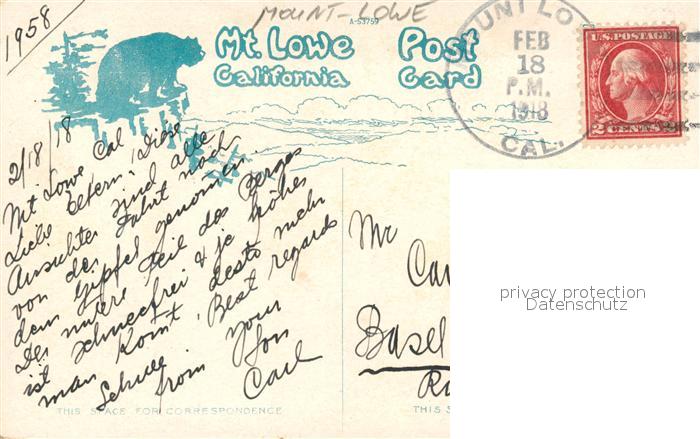 1958
MOUNT-LOWE
A-53759
Mt. Lowe
California
Post
Card
MOUNT LOWE
FEB
18
P.M.
1918
CAL.
U.S. POSTAGE
2 CENTS 2
2/18/18
Mt Lowe Cal
Liebe Eltern, Diese
Ansichten sind alle
von der Fahrt nach
dem Gipfel genommen.
Der untere Teil des Berges
ist schneefrei & je höher
man komt, desto mehr
Schnee. Best regards
from your
Son
Carl
Mr
Basel
THIS SPACE FOR CORRESPONDENCE
THIS S
privacy protection
Datenschutz